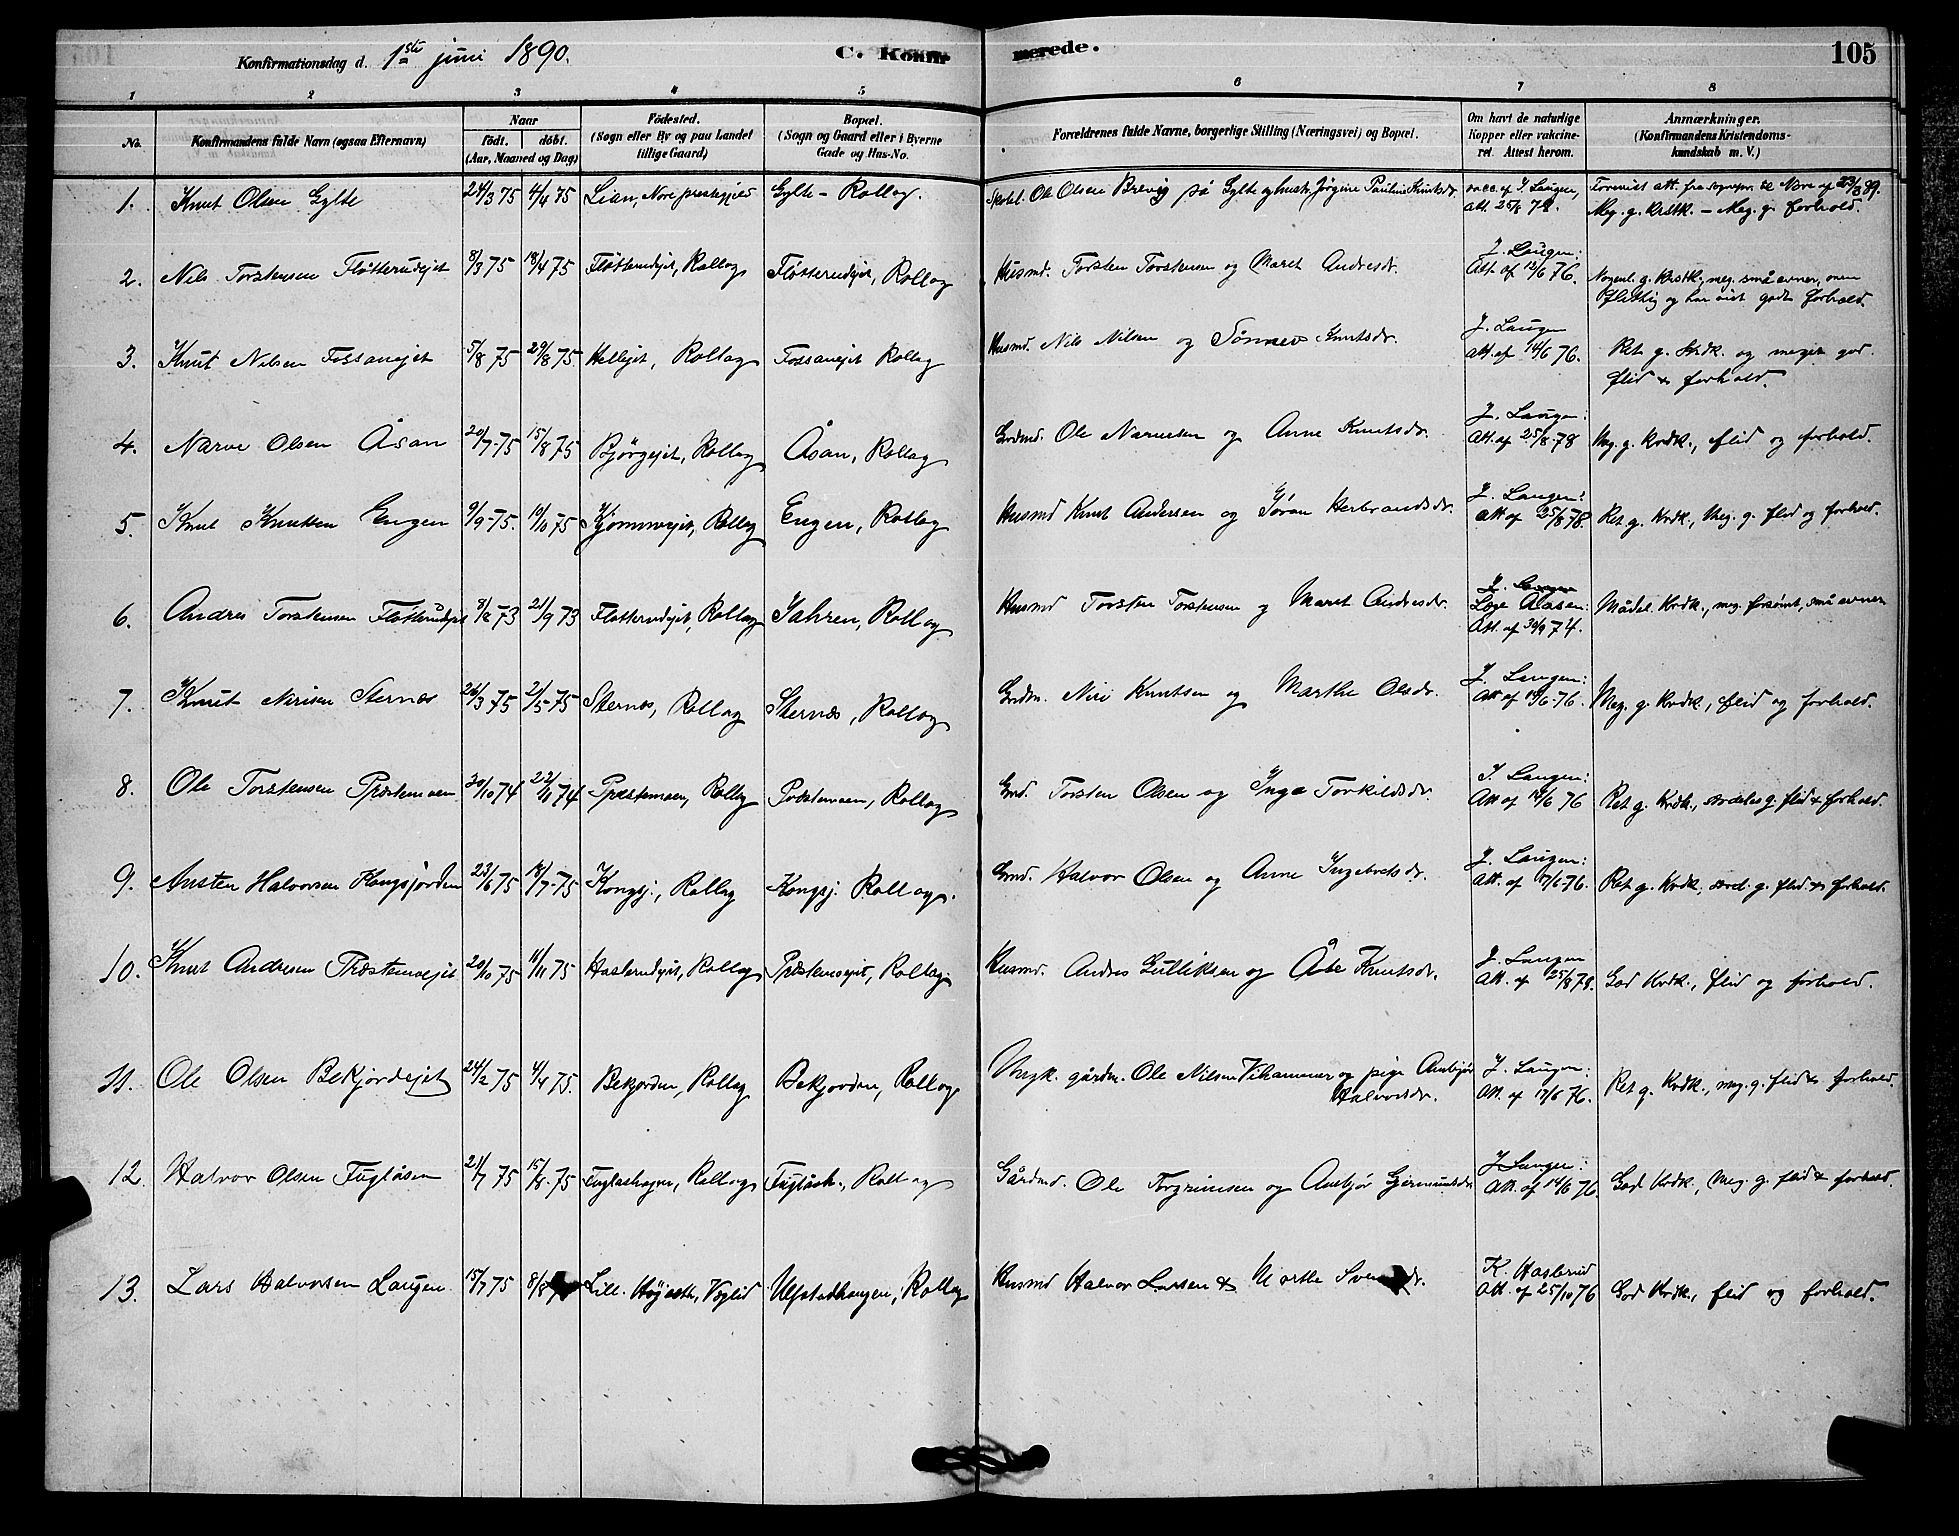 Konfirmationsdag d. 1ste juni 1890. C. Konfir merede. 105
1 2 3 4 5 6 7 8
No. Konfirmandens fulde Navn (ogsaa Efternavn) Naar födt. döbt. (Aar, Maaned og Dag) Födested. (Sogn eller By og paa Landet tillige Gaard) Bopæl. (Sogn og Gaard eller i Byerne Gade og Hus-No. Forældrenes fulde Navne, borgerlige Stilling (Næringsvei) og Bopæl. Om havt de naturlige Kopper eller vakcineret. Attest herom. Anmærkninger. (Konfirmandens Kristendomskundskab m. V.)
1. Knut Olsen Gylte 24/3 75 4/4 75 Lian, Nore prestegjeld Gylte - Rollag. Ole Olsen Brevig på Gylte og hustr. Jørgine Pauline Knutsdr. vacc. af J. Laugen, att. 25/8 78. Meg. g. kristk. - Meg. g. forhold.
2. Nils Torstensen Fløtterudejet 8/3 75 18/4 75 Fløtterudejet, Rollag Fløtterudejet, Rollag Husmd. Torsten Torstensen og Maret Andresdr. J. Laugen: Att. af 12/6 76. Nogenl. g. kristk., meg. små evner, men flittig og har vist godt forhold.
3. Knut Nilsen Fossanejet 5/8 75 29/8 75. Hellejet, Rollag Fossanejet Rollag Husmd. Nils Nilsen og Tønnev Knutsdr. J. Laugen att. af 14/6 76. Ret g. krdk. og meget god flid & forhold.
4. Narve Olsen Åsan 20/7-75 15/8 75 Bjørgejet, Rollag Åsan, Rollag Grdmd. Ole Narvesen og Anne Knutsdr. J. Laugen: Att. af 25/8-78 Meg. g. krdk., flid og forhold.
5. Knut Knutsen Engen 9/9-75. 10/10 75 Kjømmejet, Rollag Engen, Rollag Husmd Knut Andersen og Jøran Herbrandsdr. J. Laugen: att af 25/8 78. Ret g. krdk., Meg. g. flid og forhold.
6. Andres Torstensen Fløtterudejet 8/8 73 21/9 73 Fløtterudejet, Rollag Jahren, Rollag Husmd Torsten Torstensen og Maret Andresdr. Læge Aasen: Att. af 30/9 74. Mådel. krdk., meg. forsømt, små evner
7. Knut Nirisen Sternæs 26/3 75 2/5-75 Sternes, Rollag Sternæs, Rollag Grdm. Niri Knutsen og Marthe Olsdr. J. Laugen: att af 14/6-76. Meg. g. krdk., flid og forhold.
8. Ole Torstensen Præstemoen 30/10 74 22/11 74 Præstemoen, Rollag Præstemoen, Rollag Grmd. Torsten Olsen og Inga Torkildsdr. J. Laugen: att af 14/6 76 Ret g. krdk., særdeles g. flid & forhold.
9. Austen Halvorsen Kongsjorden 23/6 75 18/7-75 Kongsj., Rollag Kongsj. Rollag. Grmd. Halvor Olsen og Anne Ingebretsdr. J. Laugen: att. af 17/6-76. Ret g. krdk., særd. g. flid & forhold.
10. Knut Andresen Præstemoejet 20/10 75 11/11 75 Haslerudejet, Rollag Præstemoejet, Rollag. Husmd. Andres Gulliksen og Åse Knutsdr. J. Laugen att. af 25/8 78. God krdk., flid og forhold.
11. Ole Olsen Bekjordejet 24/2 75 4/4 75. Bekjorden, Rollag Bekjorden, Rollag Ungk. gårdm. Ole Nilsen Vihammer og pige Ambjør Halvorsdr. J. Laugen: Att. af 17/6 76. Ret g. krdk., meg. g. flid & forhold.
12. Halvor Olsen Fugløsen 21/7 75 15/8-75 Fuglashagen, Rollag Fuglåsh., Rollag Gårdmd. Ole Torgrimsen og Ambjør Germundsdr. J. Laugen: Att. af 14/6 76 God krdk., Meg. g. flid & forhold.
13. Lars Halvorsen Laugen 15/7 75 8/8 Lill. Højseth, Veglid Ulfstadhaugen, Rollag Husmd Halvor Larsen & Marthe K. Haslerud Att. af 25/10 76 God krdk., flid og forhold.